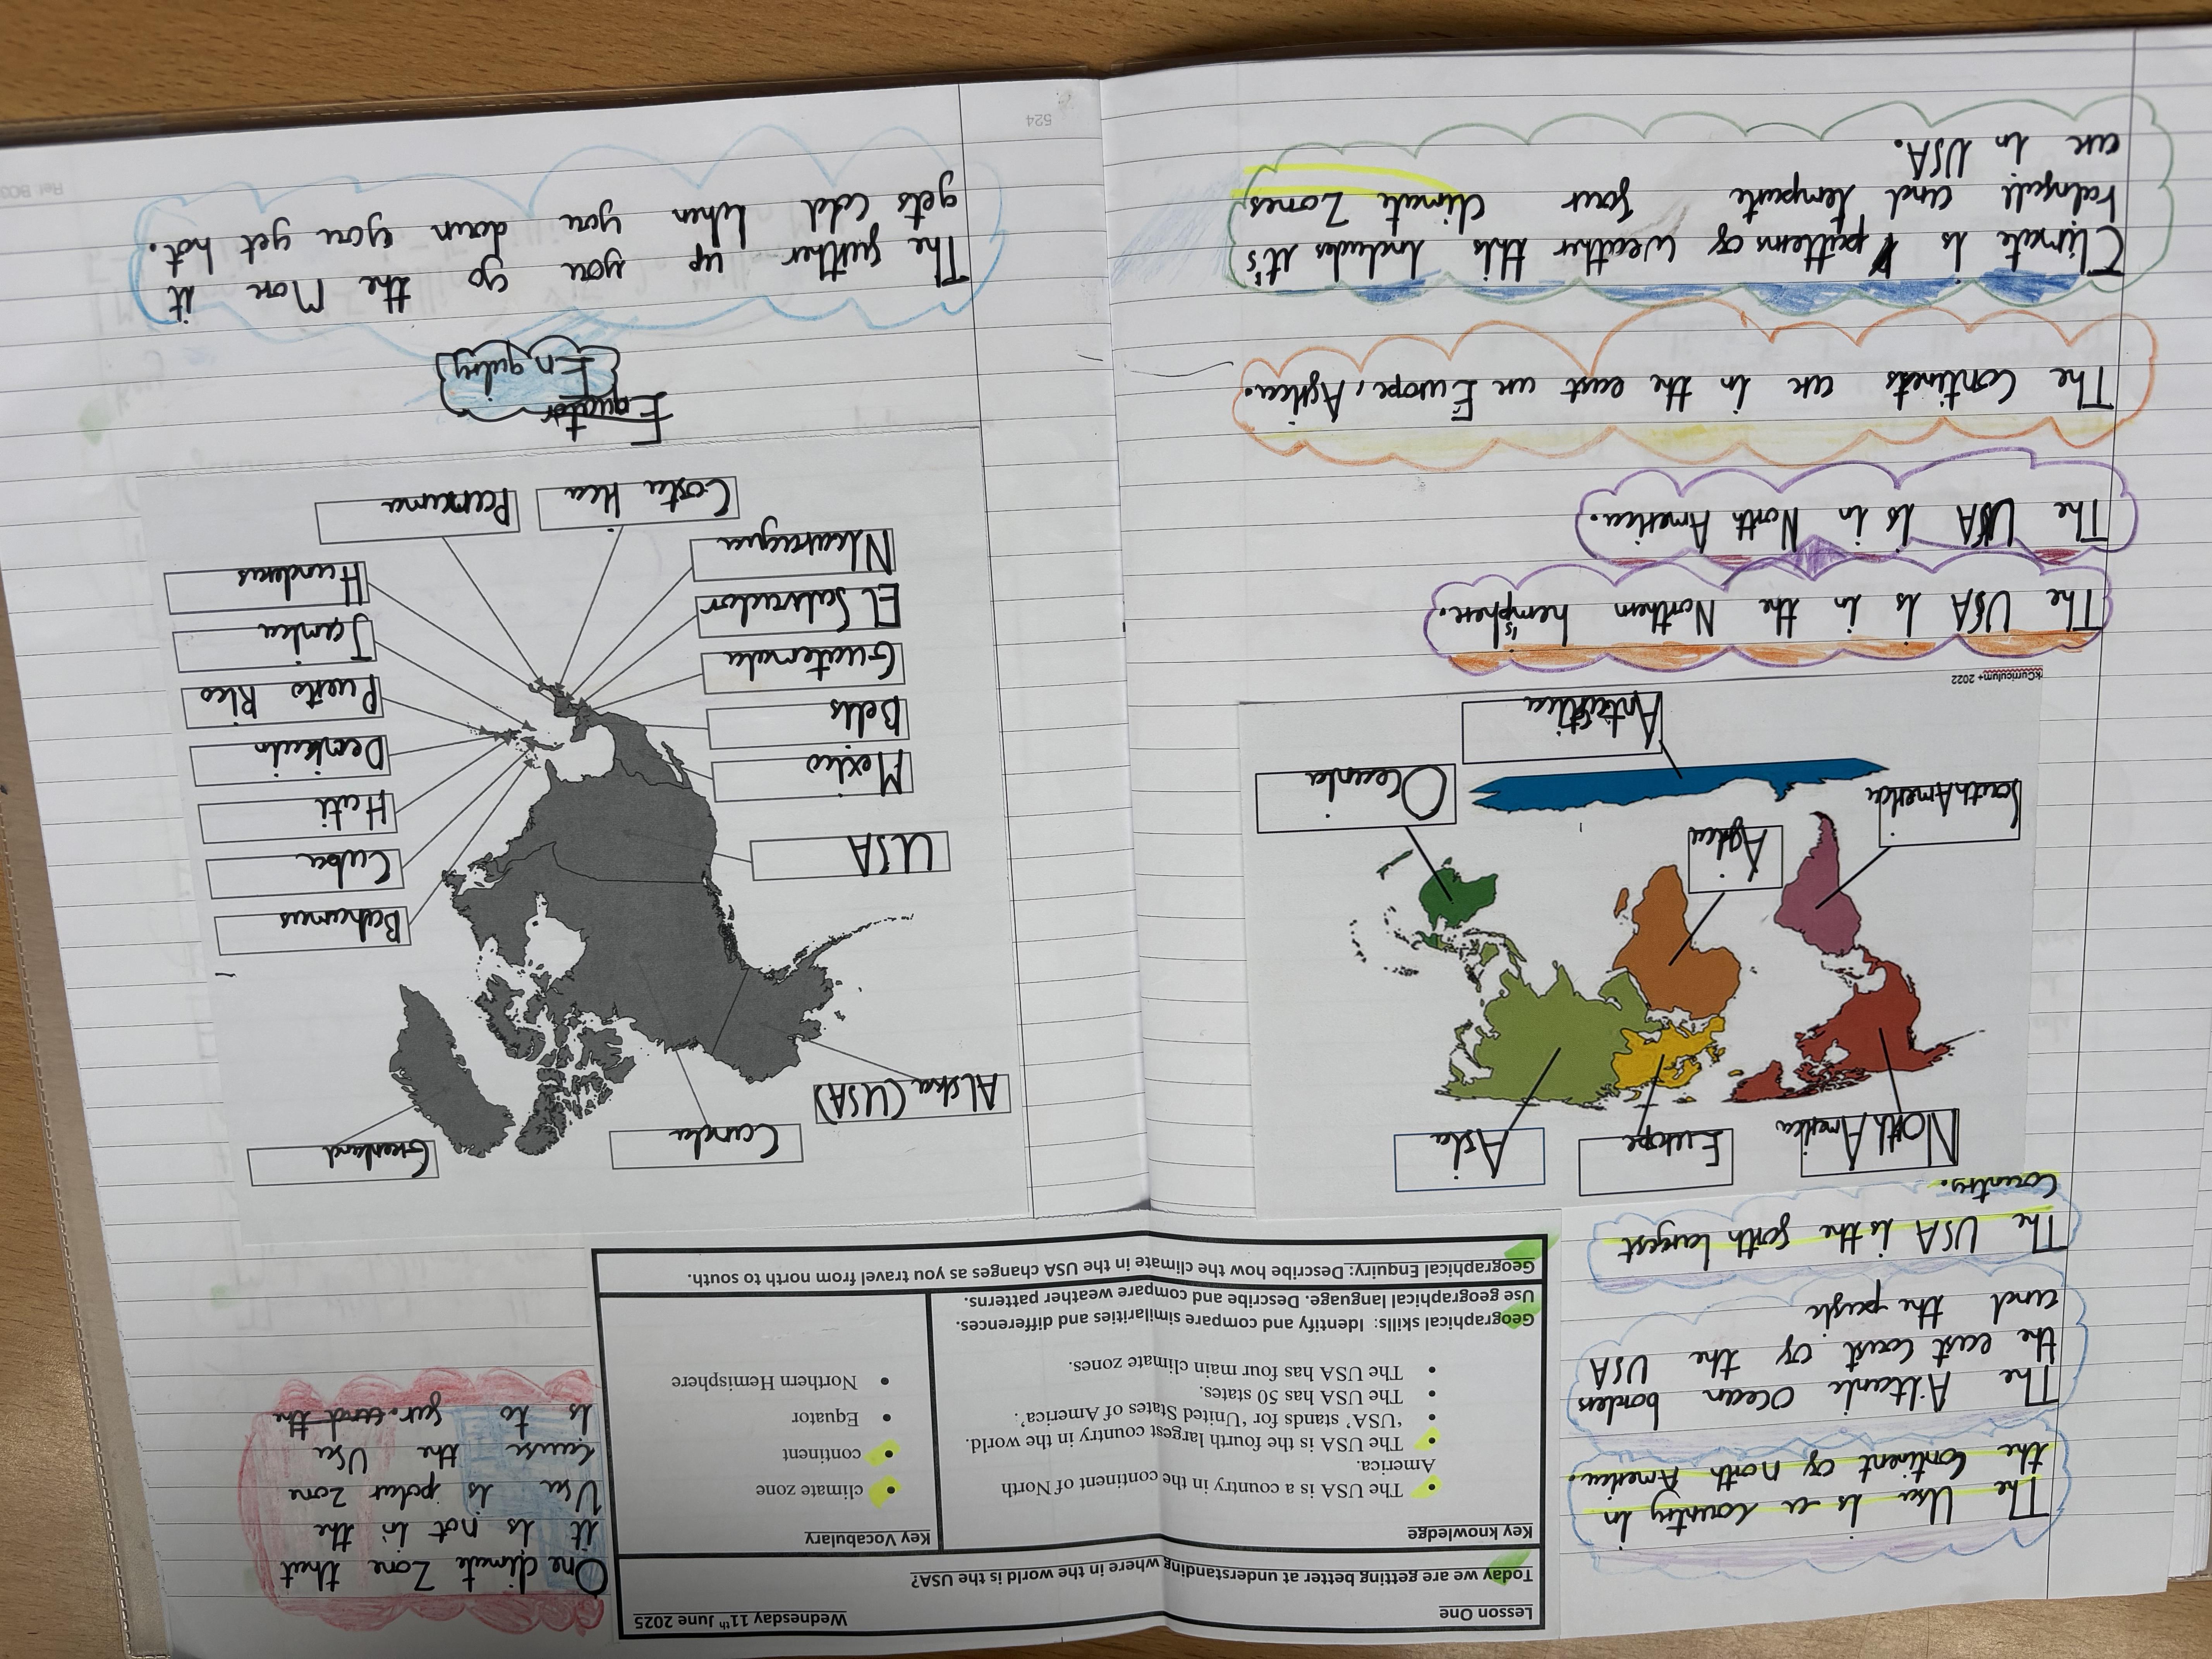 Lesson One
Wednesday 11th June 2025
Today we are getting better at understanding where in the world is the USA?
Key knowledge
The USA is a country in the continent of North
America.
The USA is the fourth largest country in the world.
'USA' stands for 'United States of America'.
The USA has 50 states.
The USA has four main climate zones.
Key Vocabulary
climate zone
continent
Equator
Northern Hemisphere
Geographical skills: Identify and compare similarities and differences.
Use geographical language. Describe and compare weather patterns.
Geographical Enquiry: Describe how the climate in the USA changes as you travel from north to south.
The Usa is a country in
the continent of North America.
The Altanic Ocean borders
the east coast of the USA
and the people
The USA is the forth largest
country.
North America
Europe
Asia
South America
Africa
Oceania
kCurriculum+ 2022
The USA is in the Northern hemisphere.
The USA is in North America.
The continets are in the east are Europe, Africa.
Climate is pattens of weather this includes it's
rainfall and tempute four climate zones
are in USA.
One climate zone that
it is not in the
Usa is polar zone
cause the Usa
is to far. and the
Greenland
Canda
Alska (USA)
USA
Mexico
Belis
Guatemala
EL Salvador
Nicaragua
Costa Rica
Panama
Hunderas
Jamica
Puerto Rico
Hati
Cuba
Bahamas
Equator
Enquiry
The further up you go the more it
gets cold when you down you get hot.
524